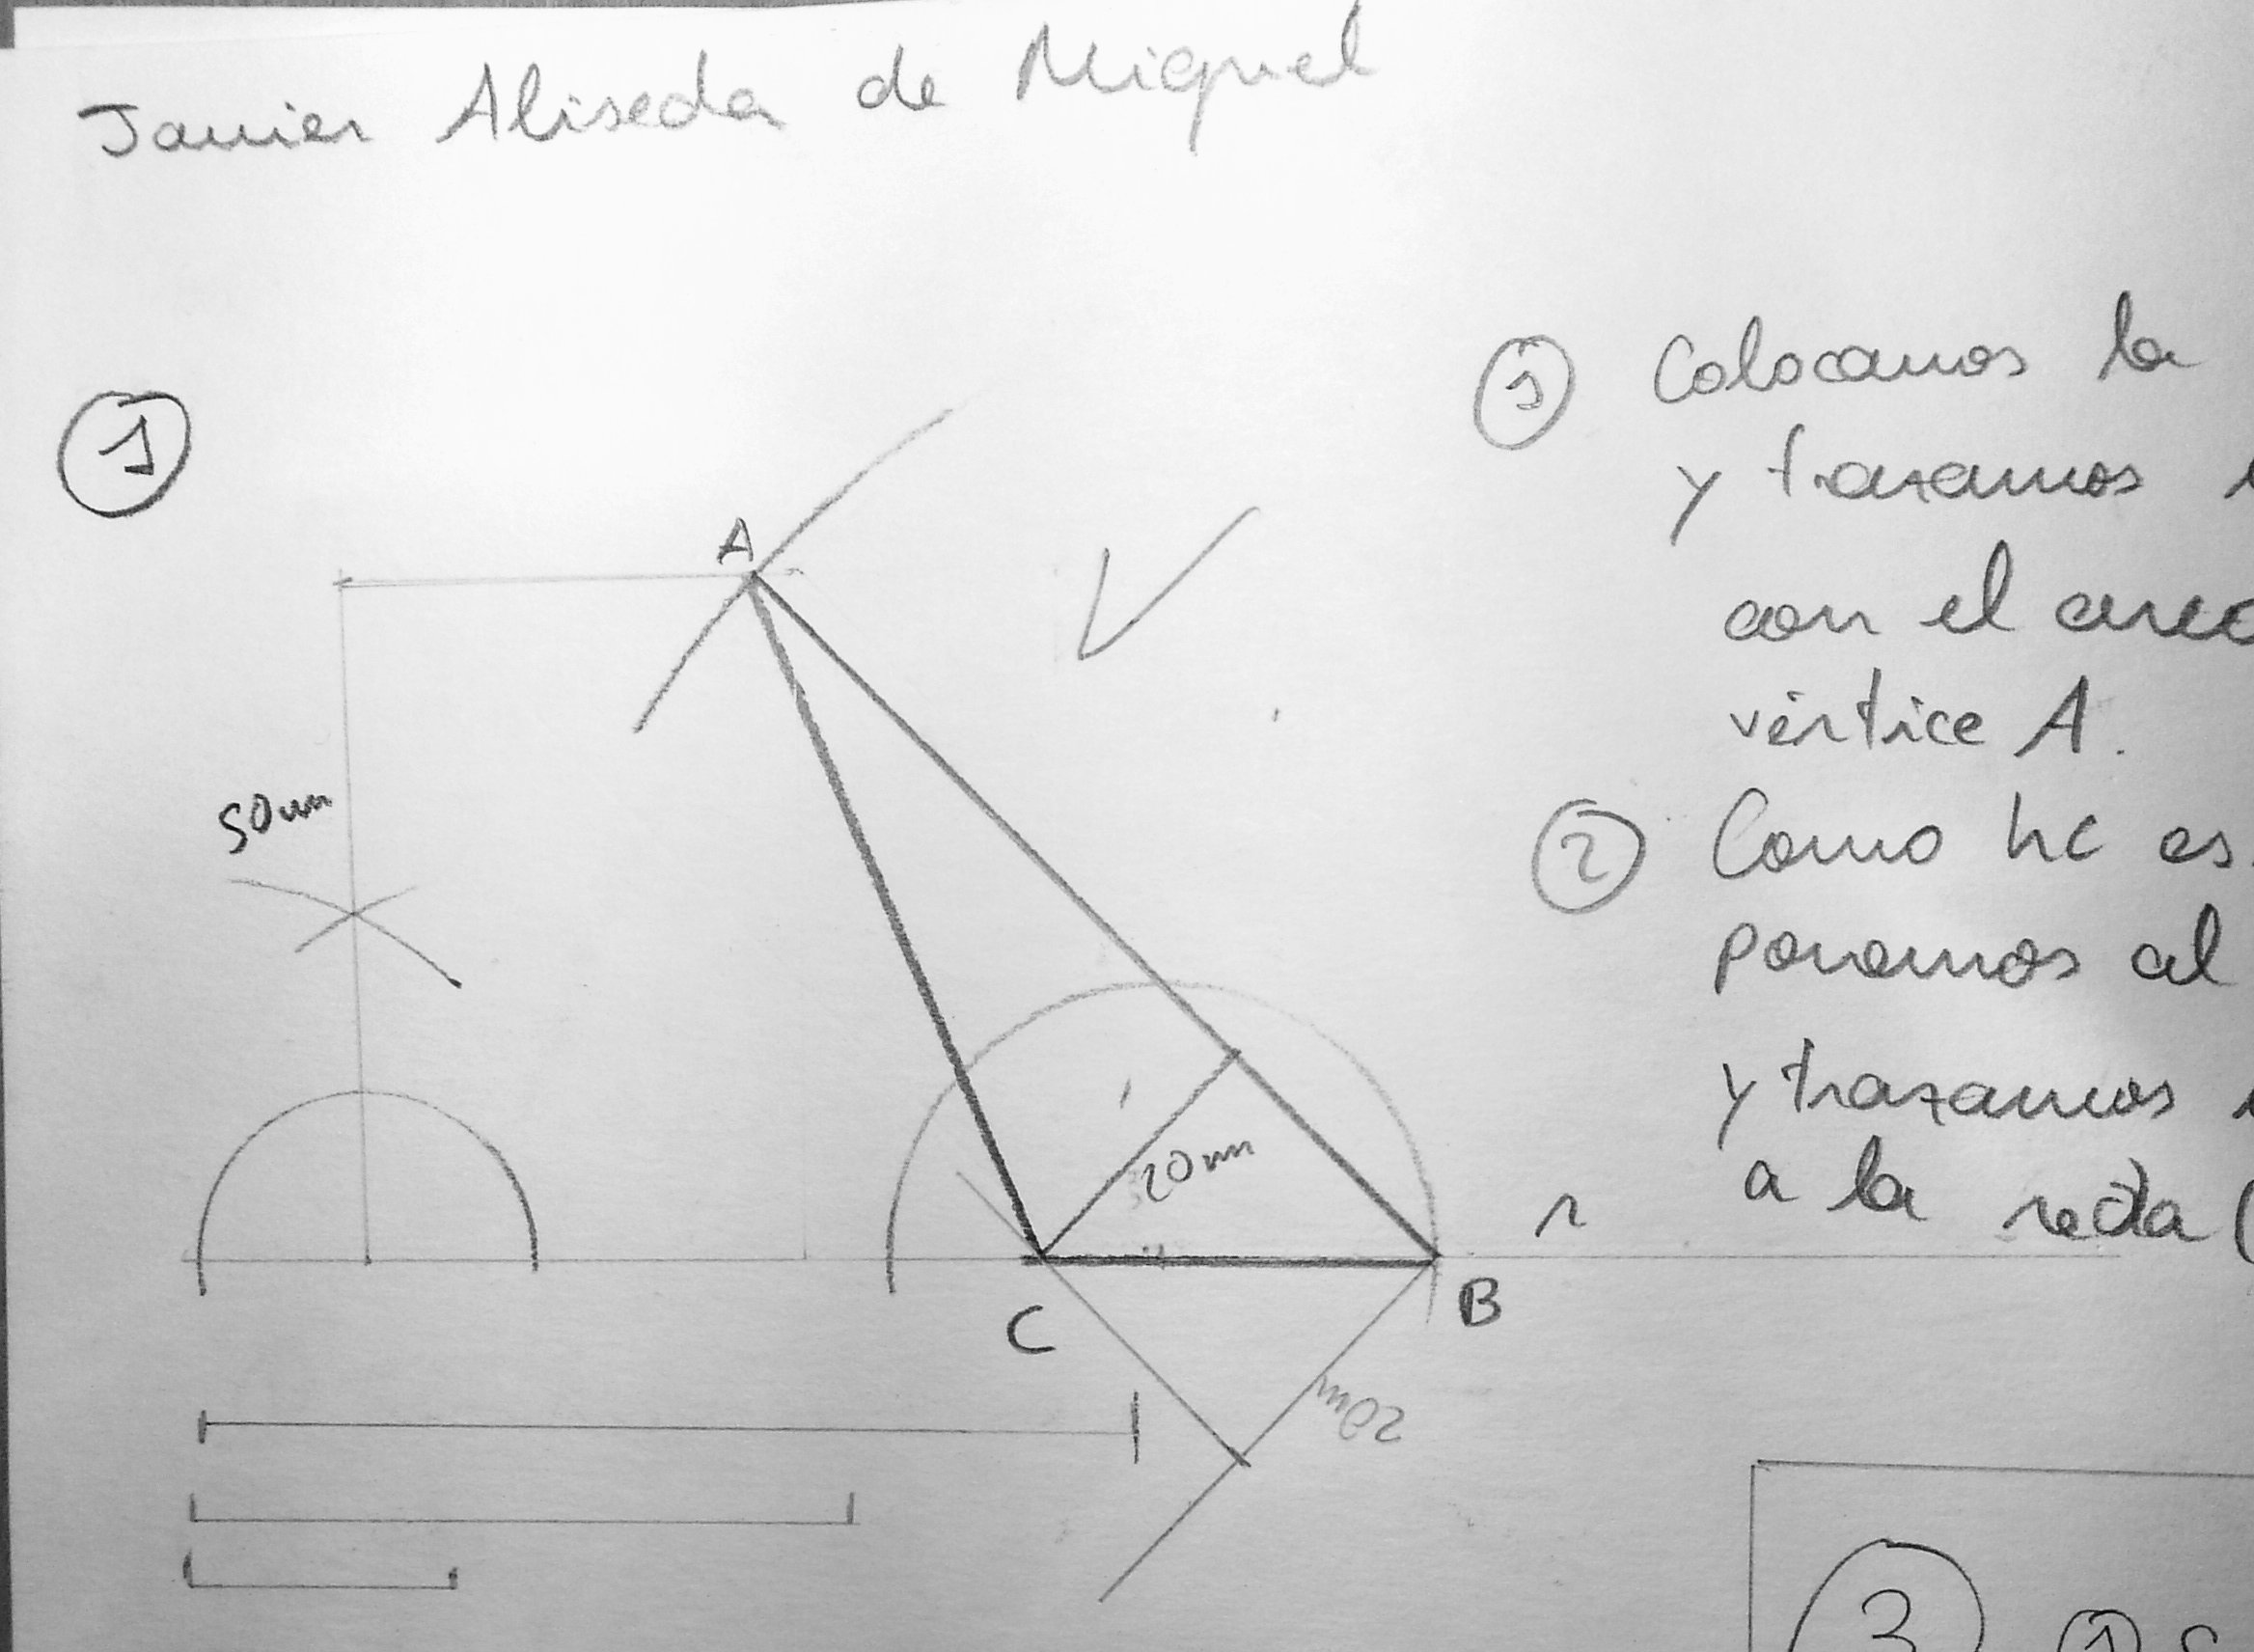 Javier Aliseda de Miguel
①
① Colocamos la
y trazamos
con el arco
vértice A.
② Como hc es
ponemos al
y trazamos
a la recta (
A
50mm
20mm
r
C
B
20m
3 ① S